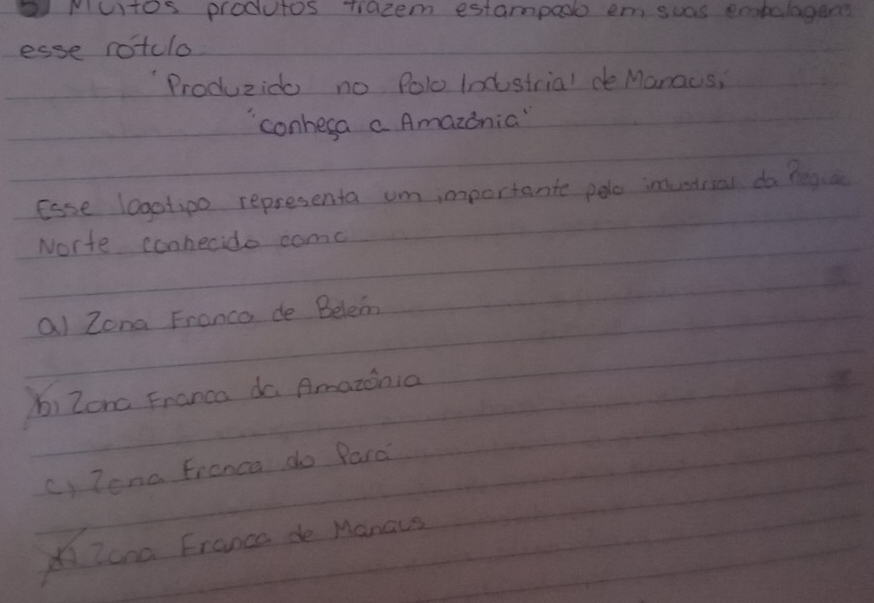 5) Muitos produtos trazem estampado em suas embalagens
esse rótulo
"Produzido no Polo Industrial de Manaus,
"conheça a Amazônia"
Esse logotipo representa um importante polo industrial da Região
Norte conhecido como
a) Zona Franca de Belém
b) Zona Franca da Amazônia
c) Zona Franca do Pará
d) Zona Franca de Manaus